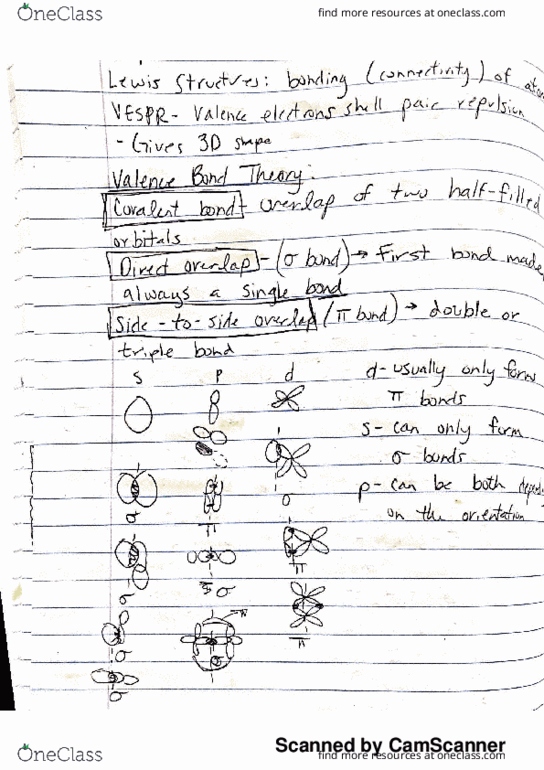 OneClass
find more resources at oneclass.com
Lewis Structures: bonding (connectivity) of atom
VESPR - Valence electrons shell pair repulsion
- Gives 3D shape
Valence Bond Theory:
Covalent bond - overlap of two half-filled
orbitals
Direct overlap - (σ bond) → First bond made
always a single bond
Side-to-side overlap (π bond) → double or
triple bond
s p d
d- usually only form
π bonds
s- can only form
σ bonds
p- can be both depend
on the orientation
σ
π
σ
σ
σ
π
σ
π
π
σ
σ
π
σ
Scanned by CamScanner
OneClass
find more resources at oneclass.com